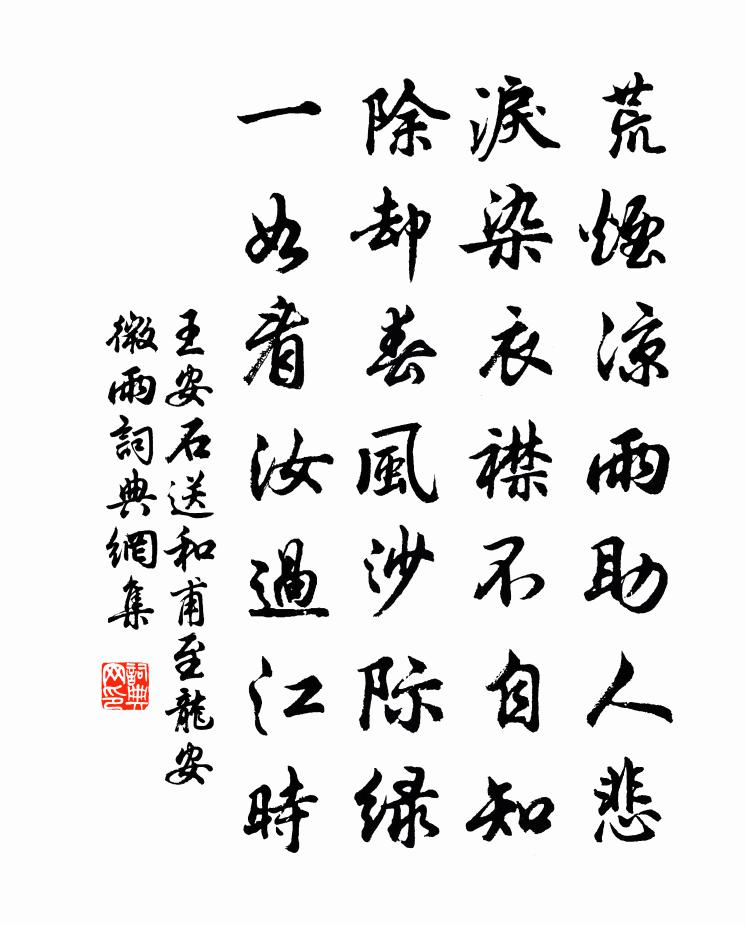 荒煙涼雨助人悲
淚染衣襟不自知
除却春風沙际绿
一如看汝過江時
王安石送和甫至龍安
微雨詞典網集
詞典网印